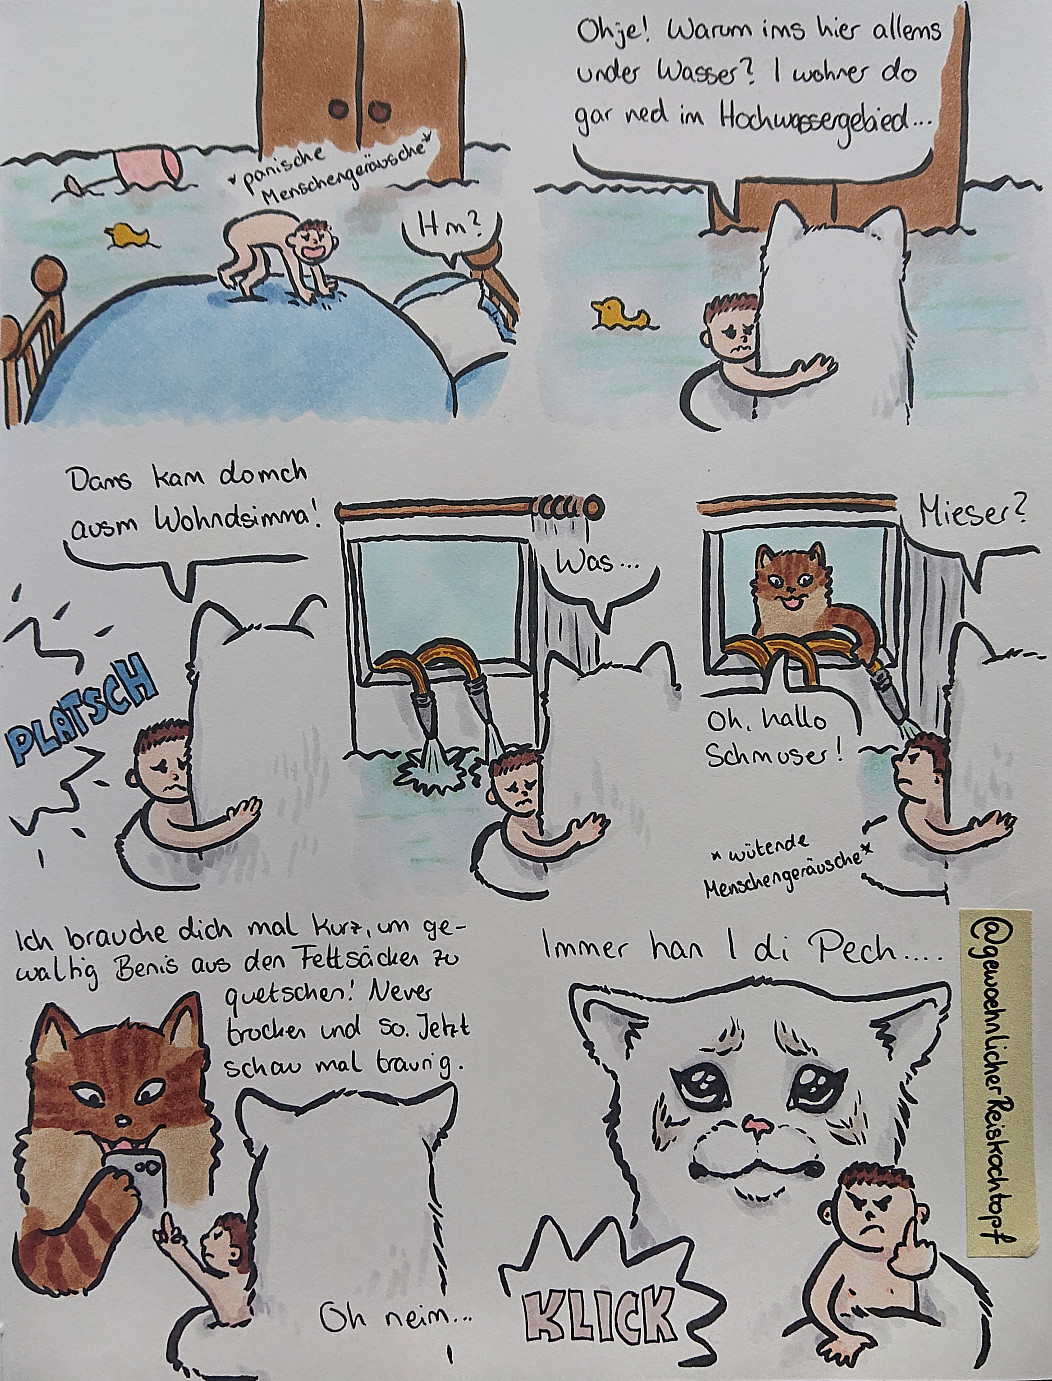 *panische
Menschengeräusche*
Hm?
Ohje! Warum ims hier allems
under Wasser? I wohner do
gar ned im Hochwassergebied...
Dams kam domch
ausm Wohndsimma!
PLATSCH
Was...
Mieser?
Oh, hallo
Schmuser!
*wütende
Menschengeräusche*
Ich brauche dich mal kurz, um ge-
waltig Benis aus den Fettsäcken zu
quetschen! Never
trocken und so. Jetzt
schau mal traurig.
Oh neim...
Immer han I di Pech....
KLICK
@gewoehnlicherReiskochtopf